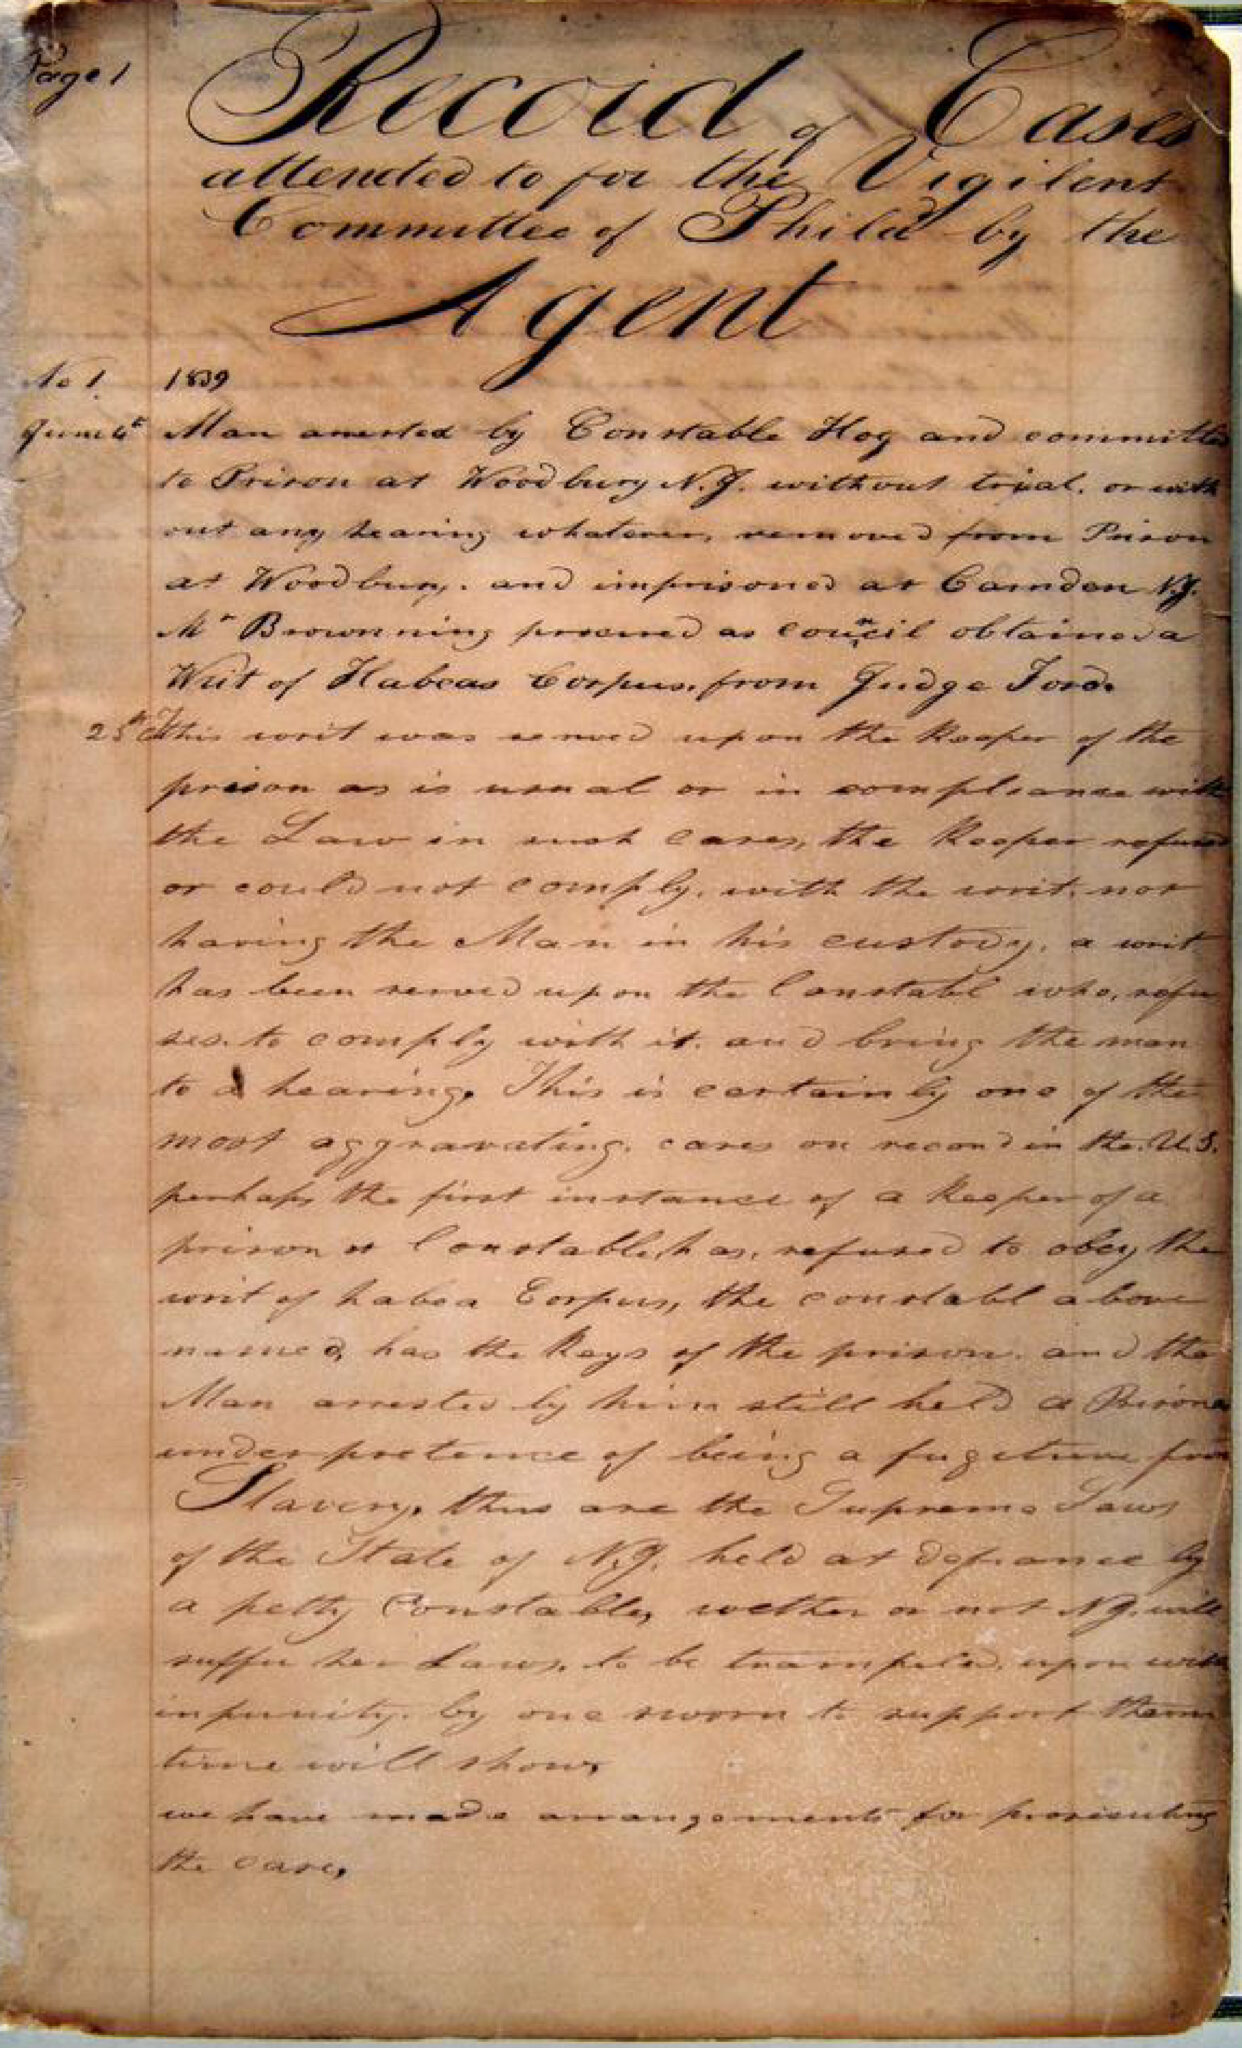 Page 1
Record of Cases
attended to for the Vigilent
Committee of Philad by the
Agent
No 1. 1839
June 4t Man arrested by Constable Hog and committed
to Prison at Woodbury N.J. without trial. or with
out any hearing whatever, removed from Prison
at Woodbury. and imprisoned at Camden N.J.
Mr Brownning procured as council obtained a
Writ of Habeas Corpus, from Judge Ford.
25th This writ was served upon the Keeper of the
prison as is usual or in compleance with
the Law in such cases, the Keeper refused
or could not comply. with the writ. not
having the Man in his custody, a writ
has been served upon the Constabl who, refu
ses. to comply with it. and bring the man
to a hearing, This is certainly one of the
most aggravating. cases on record in the. U.S.
perhaps the first instance of a Keeper of a
prison or Constable, has, refused to obey the
writ of habea Corpus, the constabl above
named, has the Keys of the prison. and the
Man arrested by him still held a Prisoner
under pretence of being a fugitive from
Slavery, thus are the Supreme Laws
of the State of N.J. held at defiance by
a petty Constable, wether or not N.J. will
suffer her Laws. to be trampeled. upon with
inpunity. by one sworn to support them
time will show,
we have made arrangements for prosicuting
the case,